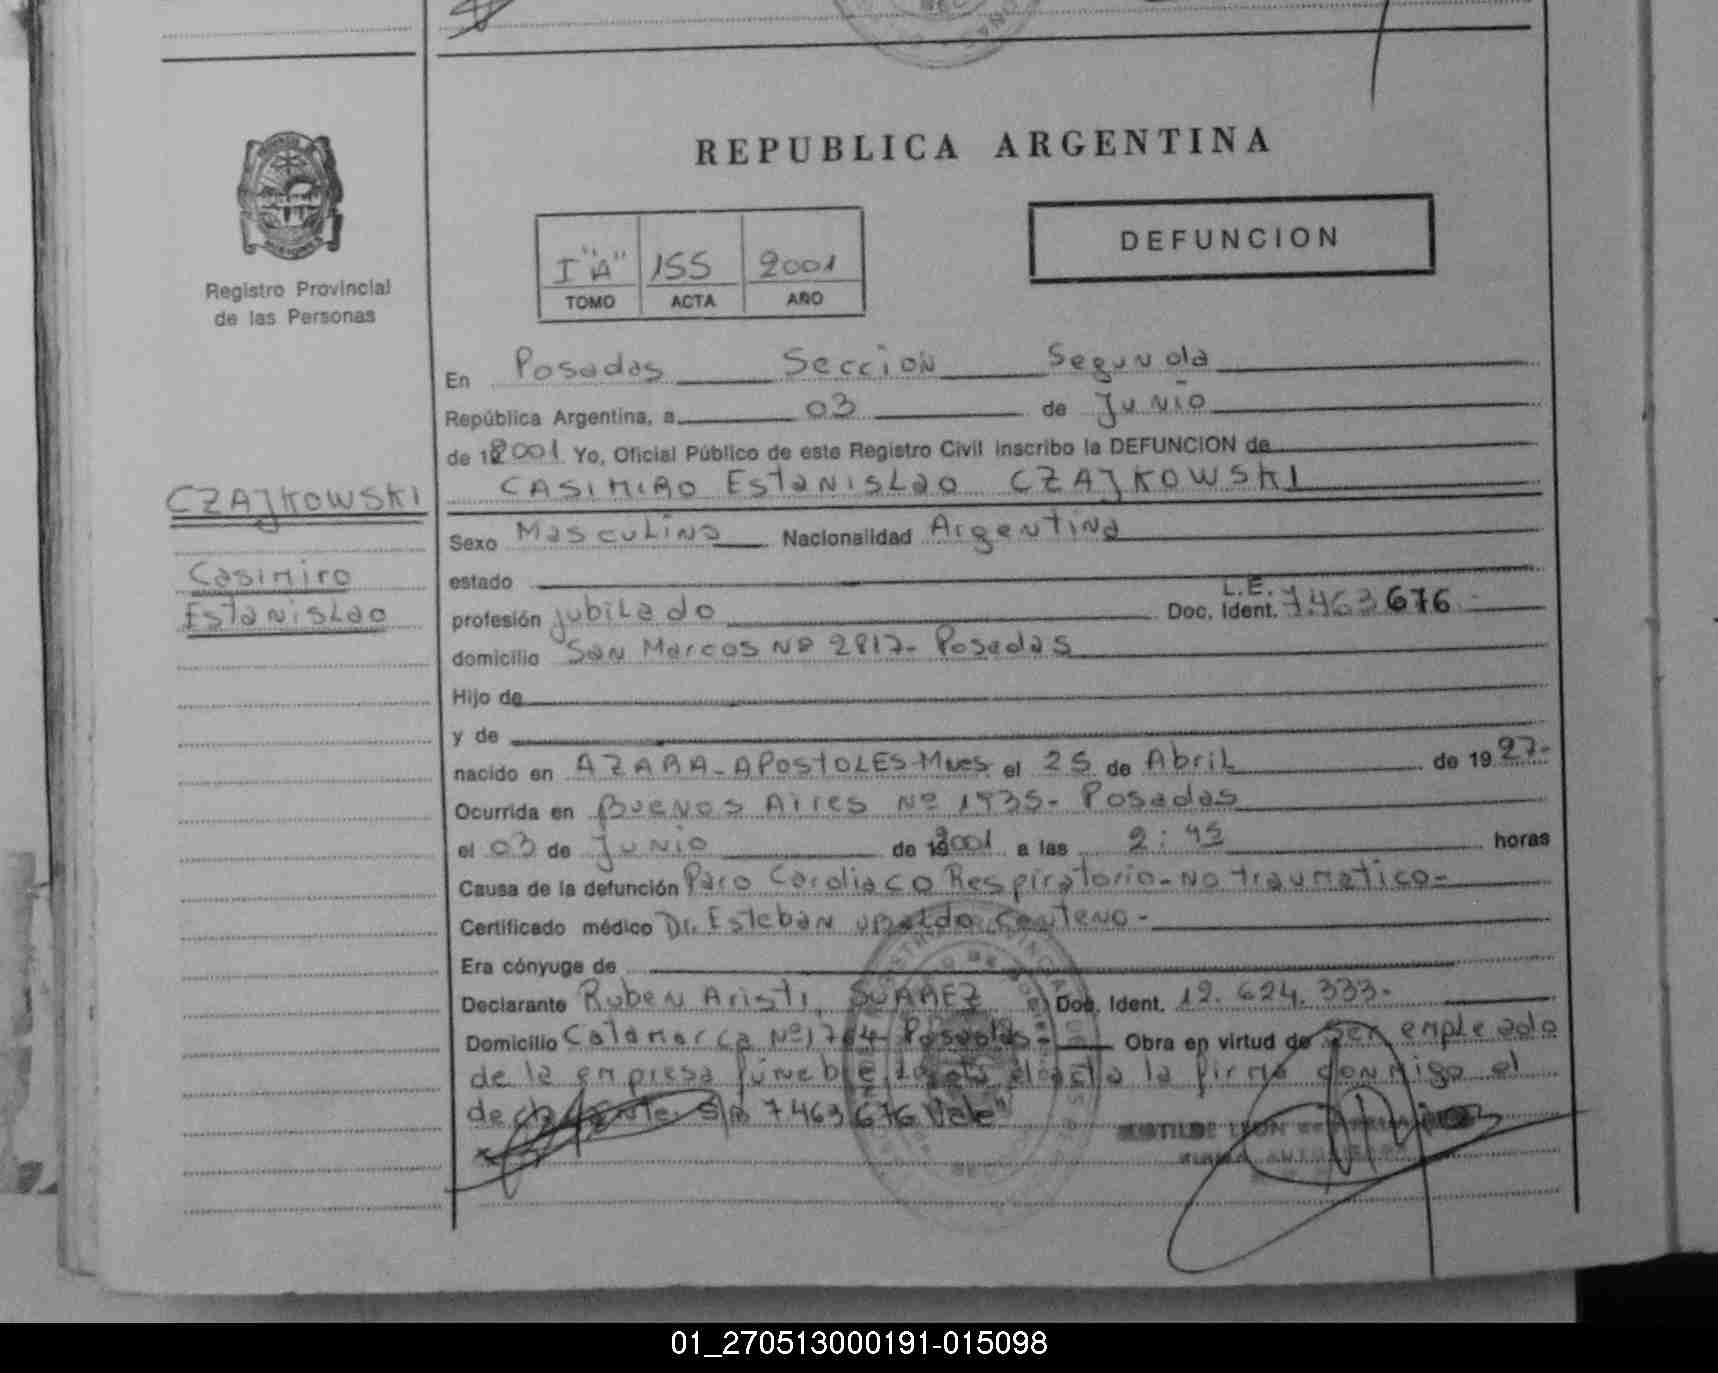 REPUBLICA ARGENTINA
DEFUNCION
I "A" 155 2001
TOMO ACTA AÑO
Registro Provincial
de las Personas
En Posadas Seccion Segunda
República Argentina, a 03 de Junio
de 2001 Yo, Oficial Público de este Registro Civil inscribo la DEFUNCION de
CASIMIRO Estanislao CZAJKOWSKI
CZAJKOWSKI
Casimiro
Estanislao
Sexo Masculino Nacionalidad Argentina
estado
profesión jubilado L.E. Doc. Ident. 7.463676
domicilio San Marcos Nº 2817- Posadas
Hijo de
y de
nacido en AZARA-APostoLES-Mnes el 25 de Abril de 1927-
Ocurrida en Buenos Aires Nº 1935- Posadas
el 03 de Junio de 2001 a las 2:45 horas
Causa de la defunción Paro Cardiaco Respiratorio-No traumatico-
Certificado médico Dr. Esteban Ubaldo Centeno-
Era cónyuge de
Declarante Ruben Aristi SUAREZ Doc. Ident. 12.624.333-
Domicilio Catamarca Nº1764 Posadas- Obra en virtud de Ser empleado
de la empresa fúnebre acta la firma conmigo el
declarante. S/R 7463676 Vale"
01_270513000191-015098